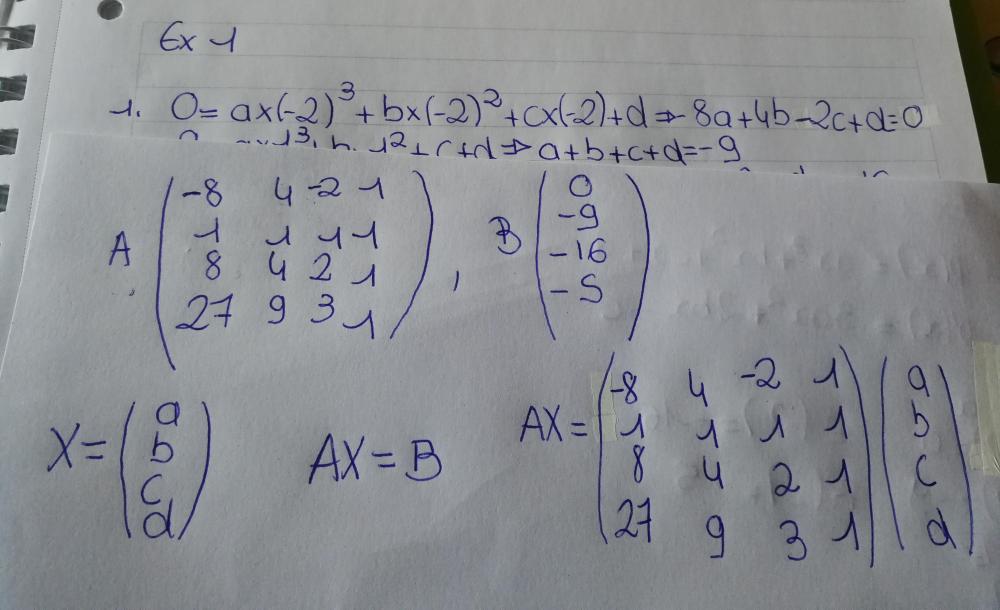 Ex 1
1. 0 = ax(-2)³ + bx(-2)² + cx(-2) + d ⇒ -8a + 4b - 2c + d = 0
1³ 1² + c + d ⇒ a + b + c + d = -9
A (-8 4 -2 1
1 1 1 1
8 4 2 1
27 9 3 1) , B (0
-9
-16
-5)
X = (a
b
c
d) AX = B AX = (-8 4 -2 1
1 1 1 1
8 4 2 1
27 9 3 1) (a
b
c
d)